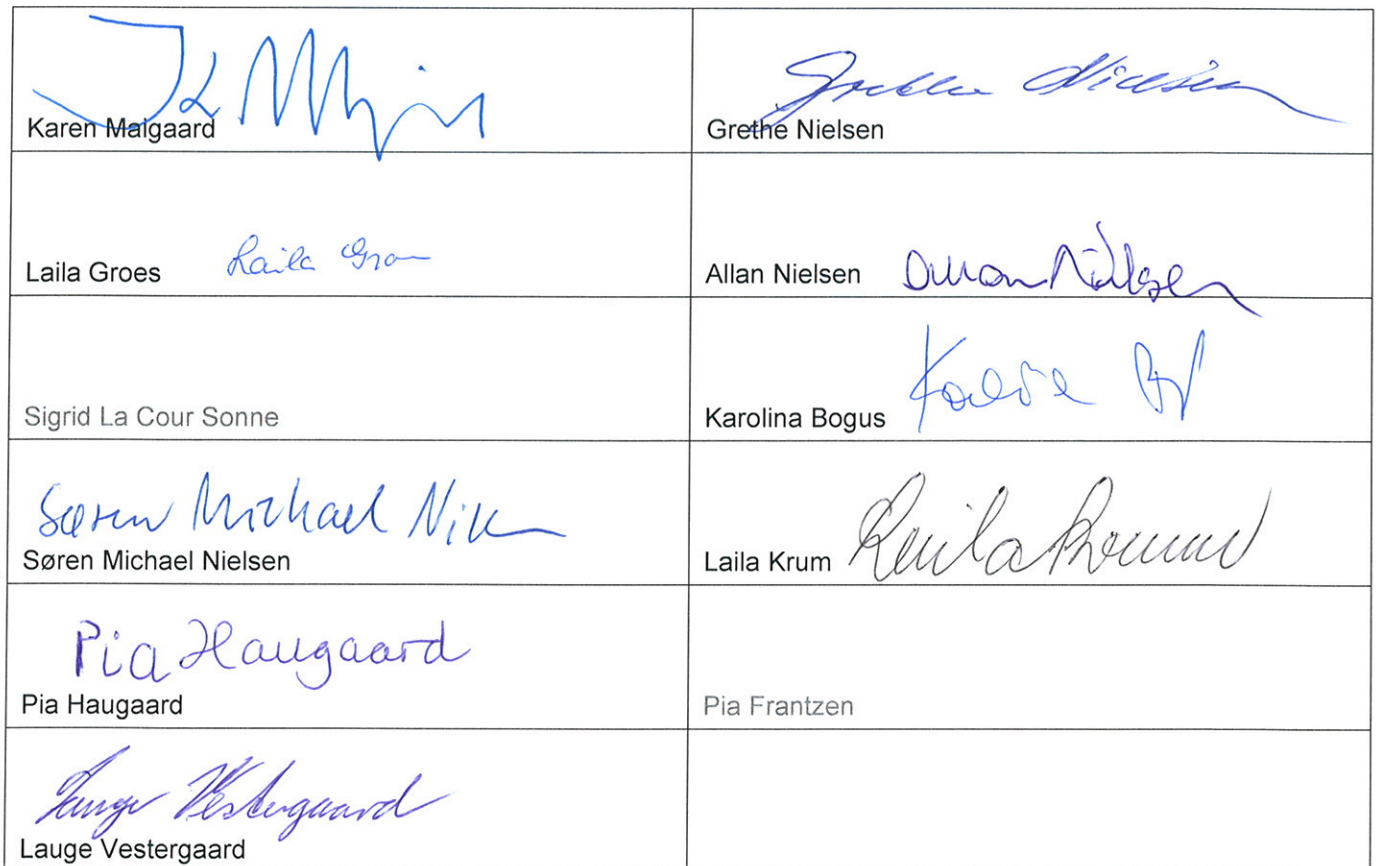 Karen Malgaard
Grethe Nielsen
Grethe Nielsen
Laila Groes
Laila Groes
Allan Nielsen
Allan Nielsen
Sigrid La Cour Sonne
Karolina Bogus
Søren Michael
Søren Michael Nielsen
Laila Krum
Laila
Pia Haugaard
Pia Haugaard
Pia Frantzen
Lauge Vestergaard
Lauge Vestergaard